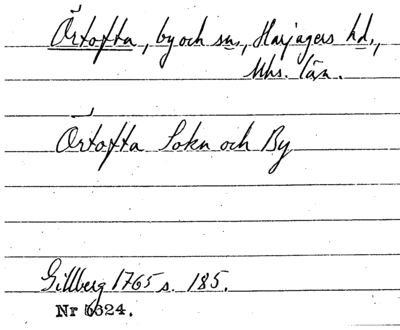 Örtofta, by och sn., Harjagers hd.,
Mhs. län.
Örtofta Sokn och By
Gillberg 1765 s. 185.
Nr 6324.